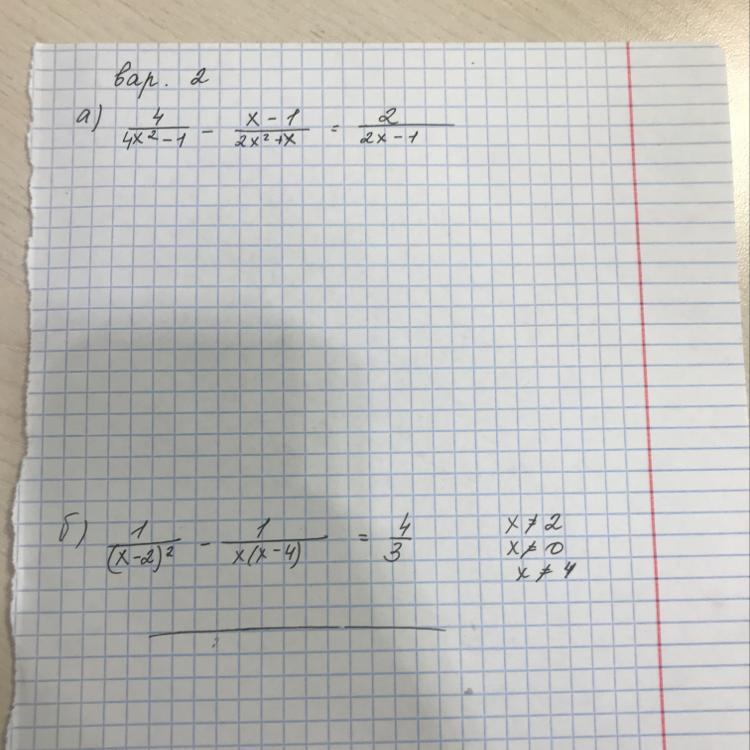 вар. 2
а) 4/(4x²-1) - (x-1)/(2x²+x) = 2/(2x-1)
б) 1/(x-2)² - 1/x(x-4) = 4/3
x≠2
x≠0
x≠4